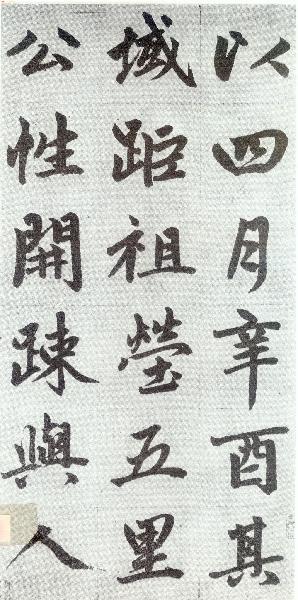 以四月辛酉其
域距祖塋五里
公性開疎與人